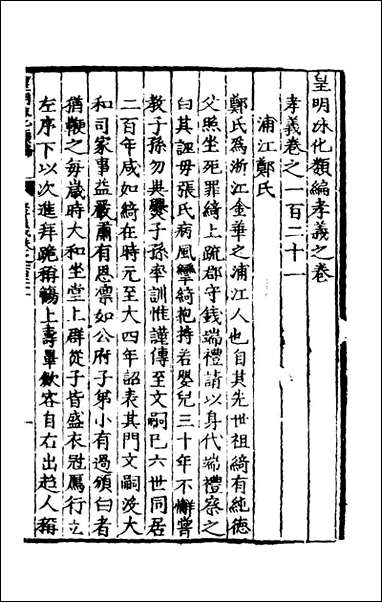 皇明泳化類編孝義之卷
孝義卷之一百二十一
浦江鄭氏
鄭氏為浙江金華之浦江人也自其先世祖綺有純德
父照坐死罪綺上疏郡守錢端禮請以身代端禮察之
白其誣毋張氏病風攣綺抱持若嬰兒三十年不懈嘗
教子孫勿異爨子孫率訓惟謹傳至文嗣巳六世同居
二百年咸如綺在時元至大四年詔表其門文嗣没大
和司家事益嚴肅有恩凛如公府子弟小有過頒白者
猶鞭之毎嵗時大和坐堂上群從子皆盛衣冠鴈行立
左序下以次進拜跪稱觴上壽畢歛容自右出趋人稱